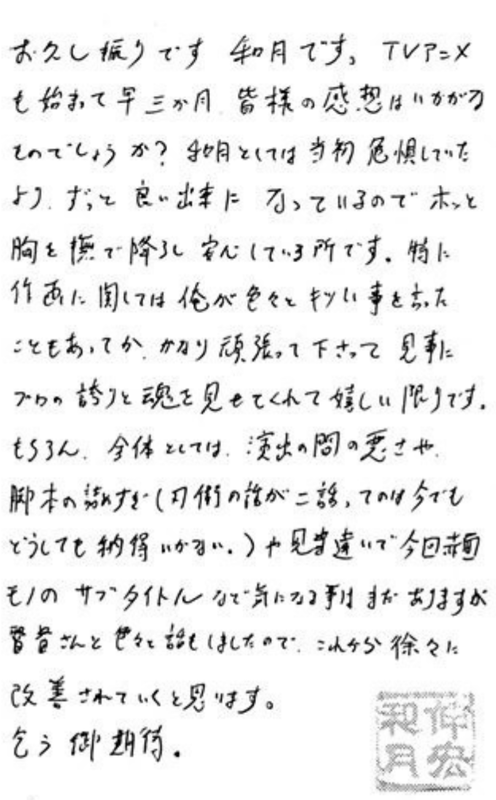 お久し振りです 和月です。TVアニメ
も始まって早三か月 皆様の感想はいかがな
ものでしょうか? 和月としては当初危惧していた
より、ずっと良い出来になっているのでホッと
胸を撫で降ろし安心している所です。特に
作画に関しては俺が色々とキツい事を言った
こともあってか、かなり頑張って下さって見事に
プロの誇りと魂を見せてくれて嬉しい限りです。
もちろん、全体としては、演出の間の悪さや、
脚本の詰めすぎ(刃衛の話が二話、ってのは今でも
どうしても納得いかない。)や見当違いで今回赤面
モノのサブタイトルなど気になる事はまだありますが
監督さんと色々と話もしましたので、これから徐々に
改善されていくと思います。
乞う御期待。
和月伸宏